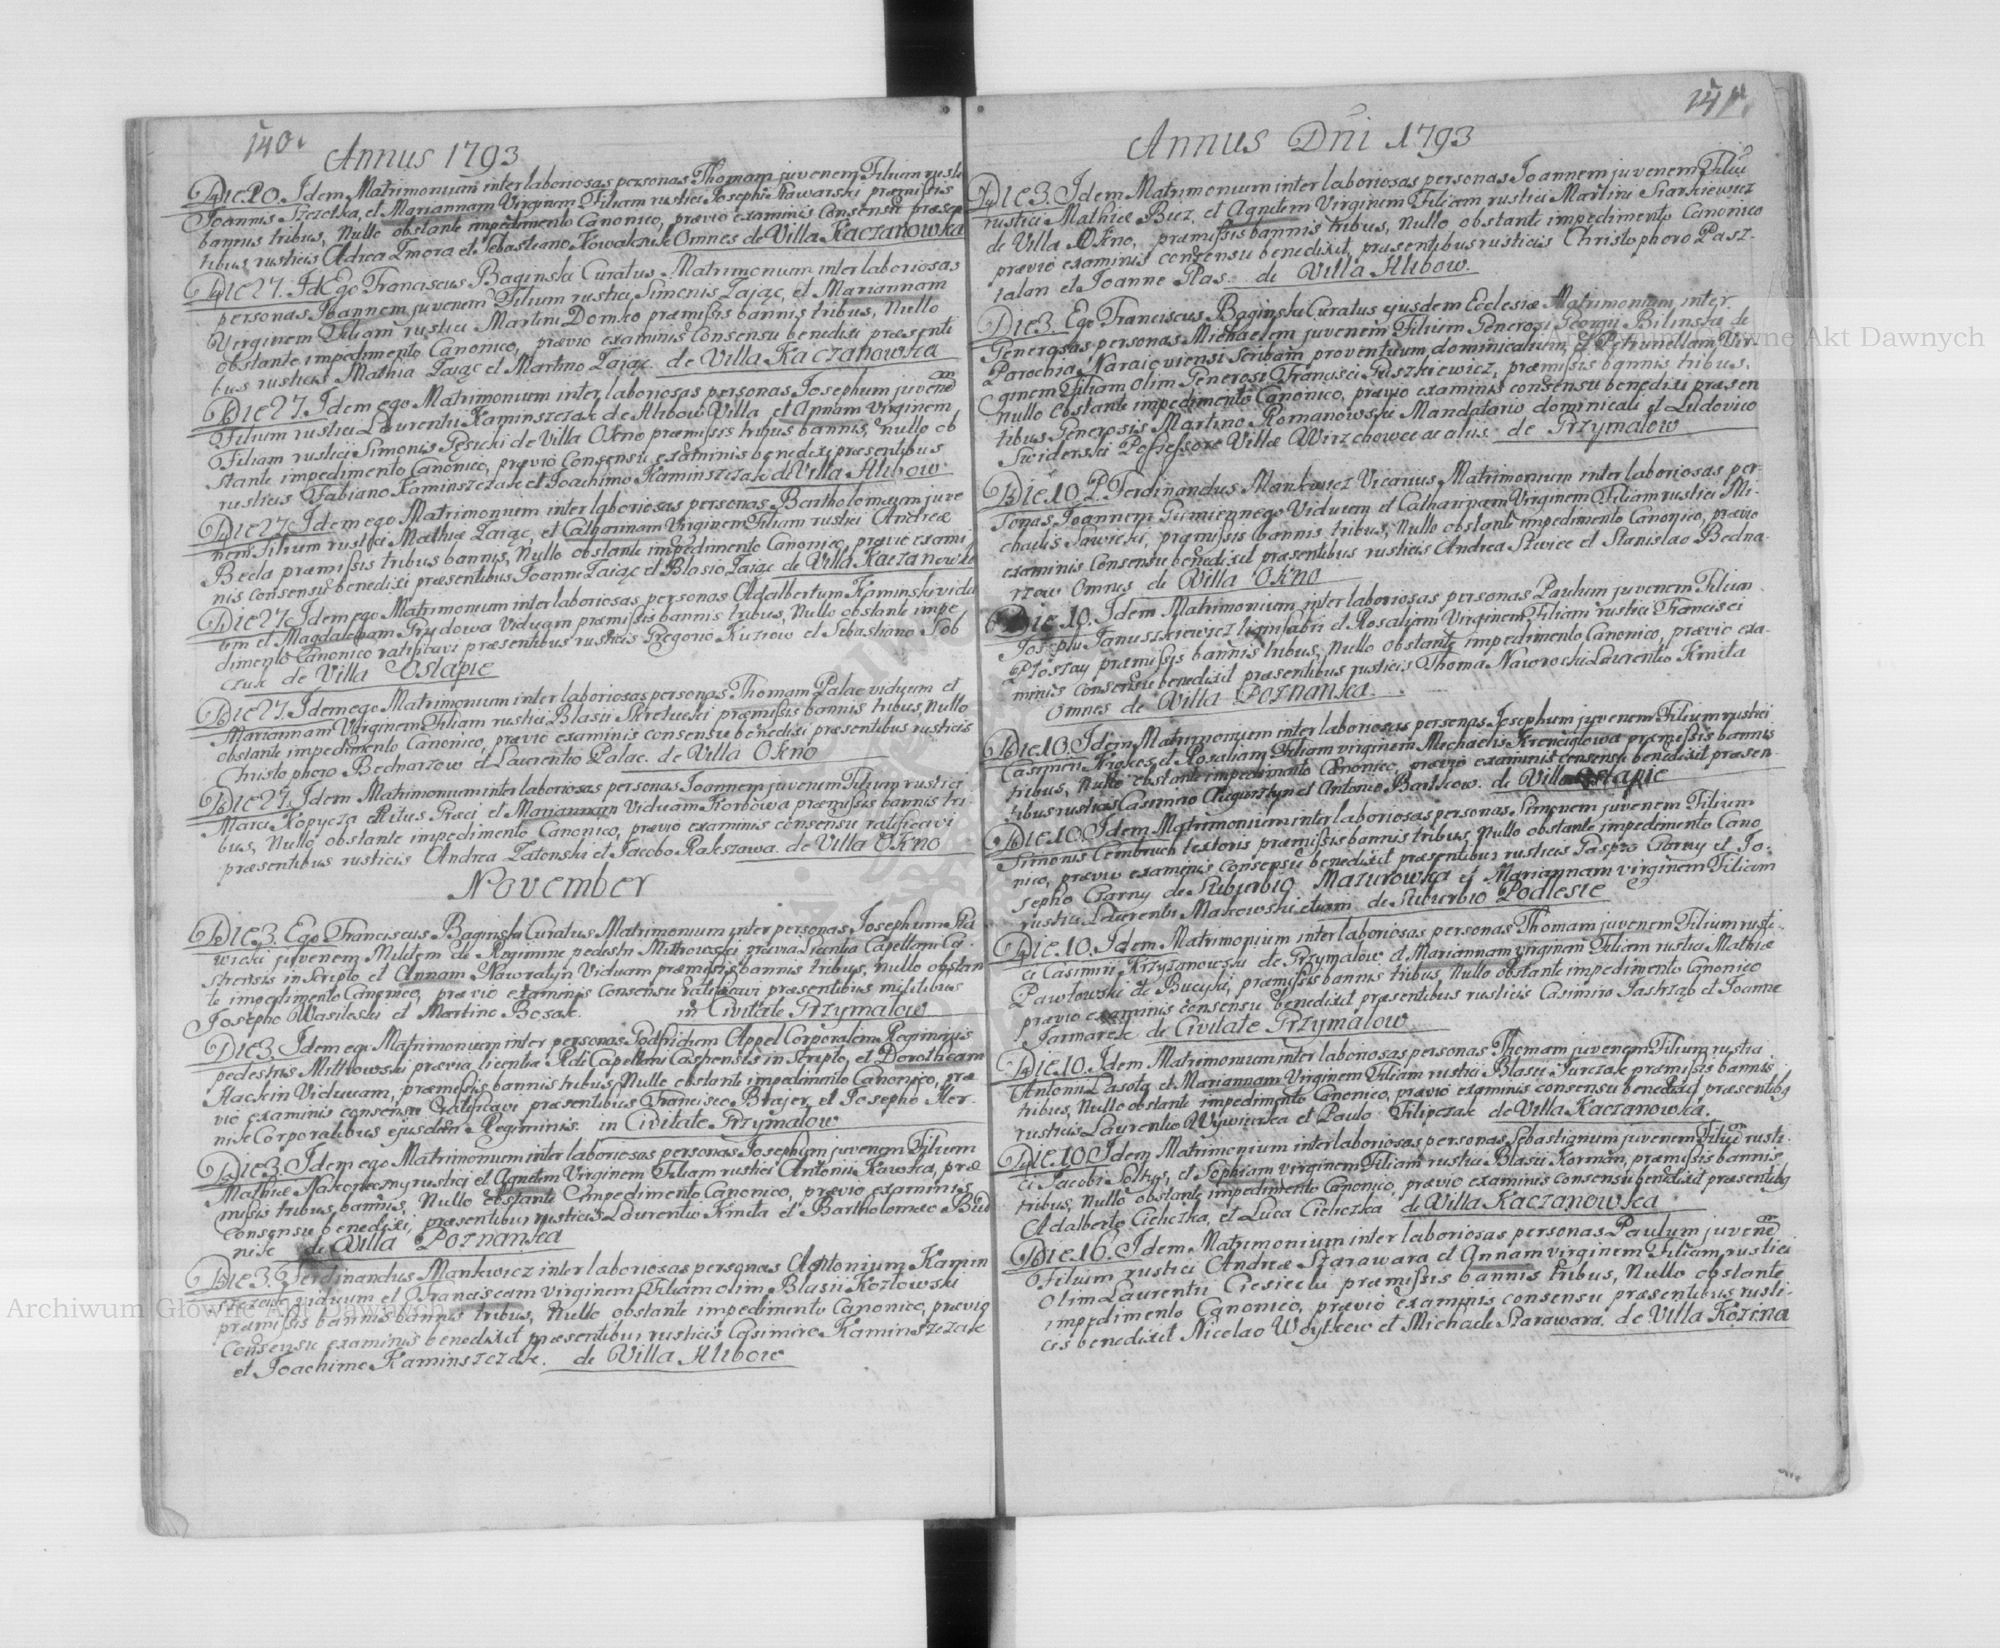 140.
Annus 1793
Die 20. Idem Matrimonium inter laboriosas personas Thomam juvenem Filium rusti
Joannis Szczotka, et Mariannam Virginem Filiam rustici Josephi Kawarski præmissis
bannis tribus, Nullo obstante impedimento Canonico, prævio examinis Consensu præsen
tibus rusticis Adrea Zmora et Sebastiano Kowalczuk Omnes de Villa Kaczanowka
Die 27. Ego Franciscus Baginski Curatus Matrimonium inter laboriosas
personas Joannem juvenem Filium rustici Simonis Zając, et Mariannam
Virginem Filiam rustici Martini Domko præmissis bannis tribus, Nullo
obstante impedimento Canonico, prævio examinis Consensu benedixi præsenti
bus rusticis Mathia Zając et Martino Zając. de Villa Kaczanowka
Die 27. Idem ego Matrimonium inter laboriosas personas Josephum juvenem
Filium rustici Laurentii Kaminszczak de Hlibow Villa et Annam Virginem
Filiam rustici Simonis Gesicki de Villa Okno præmissis tribus bannis, nullo ob
stante impedimento Canonico, prævio Consensu examinis benedixi præsentibus
rusticis Fabiano Kaminszczak et Joachimo Kaminszczak de Villa Hlibow
Die 27. Idem ego Matrimonium inter laboriosas personas Bartholomæum juve
nem Filium rustici Mathiæ Zając, et Catharinam Virginem Filiam rustici Andreæ
Becla præmissis tribus bannis, Nullo obstante impedimento Canonico, prævio exami
nis consensu benedixi præsentibus Joanne Zając et Blasio Zając de Villa Kaczanowka
Die 27. Idem ego Matrimonium inter laboriosas personas Adalbertum Kaminski vidu
um et Magdalenam Prydowa Viduam præmissis bannis tribus, Nullo obstante impe
dimento Canonico ratificavi præsentibus rusticis Gregorio Kuzrow et Sebastiano Sob
czuk de Villa Ostapie
Die 27. Idem ego Matrimonium inter laboriosas personas Thomam Palac viduum et
Mariannam Virginem Filiam rustici Blasii Skretucki præmissis bannis tribus, Nullo
obstante impedimento Canonico, prævio examinis consensu benedixi præsentibus rusticis
Christophoro Bednarzow et Laurentio Palac. de Villa Okno
Die 27. Idem Matrimonium inter laboriosas personas Joannem juvenem Filium rustici
Marci Kopycza Ritus Græci et Mariannam Viduam Korbowa præmissis bannis tri
bus, Nullo obstante impedimento Canonico, prævio examinis consensu ratificavi
præsentibus rusticis Andrea Zatonski et Jacobo Rakszawa. de Villa Okno
November
Die 3. Ego Franciscus Baginski Curatus Matrimonium inter personas Josephum
wicki juvenem Militem de Regimine pedestri Mitrowski prævia licentia Capellani Ca
strensis in Scripto et Annam Nawralyn Viduam præmissis bannis tribus, Nullo obstan
te impedimento Canonico, prævio examinis Consensu ratificavi præsentibus militibus
Josepho Wasileski et Martino Bosak. in Civitate Grzymalow
Die 3. Idem ego Matrimonium inter personas Godfridum Appel Corporalem Regiminis
pedestris Mittrowski prævia licentia Rdi Capellani Castrensis in Scripto, et Dorotheam
Hackin Viduam, præmissis bannis tribus, Nullo obstante impedimento Canonico, præ
vio examinis consensu ratificavi præsentibus Francisco Brajer, et Josepho Her.
nik Corporalibus ejusdem Regiminis. in Civitate Grzymalow
Die 3. Idem ego Matrimonium inter laboriosas personas Josephum juvenem Filium
Mathiæ Nakonecny rustici et Agnetem Virginem Filiam rustici Antonii Kawska, præ
missis tribus bannis, Nullo obstante impedimento Canonico, prævio examinis
consensu benedixi, præsentibus rusticis Laurentio Kmita et Bartholomeo Bud
nik de Villa Poznanka
Die 3. Ferdinandus Mankwicz inter laboriosas personas Antonium Kamin
szczak viduum et Franciscam virginem Filiam olim Blasii Kozlowski
præmissis bannis bannis tribus, Nullo obstante impedimento Canonico, prævio
consensu examinis benedixit præsentibus rusticis Casimiro Kaminszczak
et Joachimo Kaminszczak. de Villa Hlibow
141.
Annus Dni 1793
Die 3. Idem Matrimonium inter laboriosas personas Joannem juvenem Filiu
rustici Mathiæ Buz, et Agnetem Virginem Filiam rustici Martini Siarkiewicz
de Villa Okno, præmissis bannis tribus, Nullo obstante impedimento Canonico
prævio examinis consensu benedixit, præsentibus rusticis Christophoro Pasz-
talan et Joanne Glas. de Villa Hlibow.
Die 3. Ego Franciscus Baginski Curatus ejusdem Ecclesiæ Matrimonium inter
Generosas personas Michaelem juvenem Filium Generosi Georgii Bilinski de
Parochia Naraioviensi Scribam proventuum dominicalium, et Petrunellam Vir
ginem Filiam olim Generosi Francisci Guszkiewicz, præmissis bannis tribus,
nullo obstante impedimento Canonico, prævio examinis consensu benedixi præsen
tibus Generosis Martino Romanowski Mandatario dominicali et Ludovico
Swiderski Possessore Villæ Wirzchowce ac aliis. de Grzymalow
Die 10 P. Ferdinandus Mankwicz Vicarius Matrimonium inter laboriosas per-
sonas Joannem Gumiennego Viduum et Catharinam Virginem Filiam rustici Mi-
chaelis Sawicki, præmissis bannis tribus, Nullo obstante impedimento Canonico, prævio
examinis Consensu benedixit præsentibus rusticis Andrea Siwiec et Stanislao Bedna-
rzow Omnes de Villa Okno
Die 10. Idem Matrimonium inter laboriosas personas Paulum juvenem Filium
Josephi Januszkiewicz lignifabri et Rosaliam Virginem Filiam rustici Francisci
Ploszay præmissis bannis tribus, Nullo obstante impedimento Canonico, prævio exa-
minis consensu benedixit præsentibus rusticis Thoma Naworocki Laurentio Kmita
Omnes de Villa Poznanka.
Die 10. Idem Matrimonium inter laboriosas personas Josephum juvenem Filium rustici
Casimiri et Rosaliam Filiam virginem Michaelis Krenciglowa præmissis bannis
tribus, Nullo obstante impedimento Canonico, prævio examinis consensu benedixit præsen-
tibus rusticis Casimiro Augustyn et Antonio Bartkow. de Villa Ostapie
Die 10. Idem Matrimonium inter laboriosas personas Simonem juvenem Filium
Simonis Cembruch textoris præmissis bannis tribus, Nullo obstante impedimento Cano
nico, prævio examinis Consensu benedixit præsentibus rusticis Gaspro Czarny et Jo-
sepho Czarny de Suburbio Mazurowka et Mariannam virginem Filiam
rustici Laurentii Makowski etiam de Suburbio Podlesie
Die 10. Idem Matrimonium inter laboriosas personas Thomam juvenem Filium rusti-
ci Casimiri Krzyzanowski de Grzymalow et Mariannam virginem Filiam rustici Mathiæ
Pawlowski de Bucyki, præmissis bannis tribus, Nullo obstante impedimento Canonico
prævio examinis consensu benedixit præsentibus rusticis Casimiro Jastrząb et Joanne
Jarmarek de Civitate Grzymalow
Die 10. Idem Matrimonium inter laboriosas personas Thomam juvenem Filium rustici
Antonii Lasota et Mariannam Virginem Filiam rustici Blasii Jurczak præmissis bannis
tribus, Nullo obstante impedimento Canonico, prævio examinis consensu benedixit præsentibus
rusticis Laurentio Wywiorka et Paulo Filipczak de Villa Kaczanowka.
Die 10 Idem Matrimonium inter laboriosas personas Sebastianum juvenem Filium rusti-
ci Jacobi Soltys, et Sophiam virginem Filiam rustici Blasii Korman, præmissis bannis
tribus, Nullo obstante impedimento Canonico, prævio examinis consensu benedixit præsentibus
Adalberto Cieliczka, et Luca Cieliczka de Villa Kaczanowka
Die 16. Idem Matrimonium inter laboriosas personas Paulum juvenem
Filium rustici Andreæ Szarawara et Annam virginem Filiam rustici
olim Laurentii Ciesielu præmissis bannis tribus, Nullo obstante
impedimento Canonico, prævio examinis consensu præsentibus rusti-
cis benedixit Nicolao Woytkow et Michaele Szarawara. de Villa Kozina
Archiwum Główne Akt Dawnych